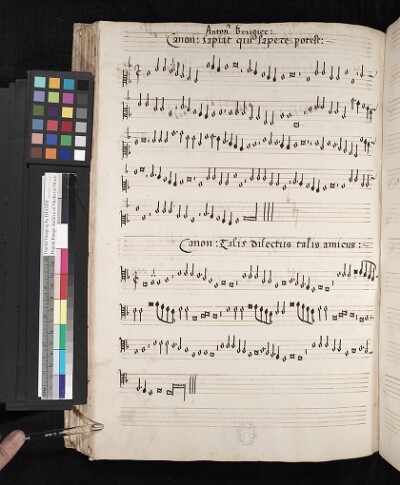 Anton: Brugier:
Canon: Sapiat qui sapere potest: ~
Canon: Talis dilectus talis amicus: ~